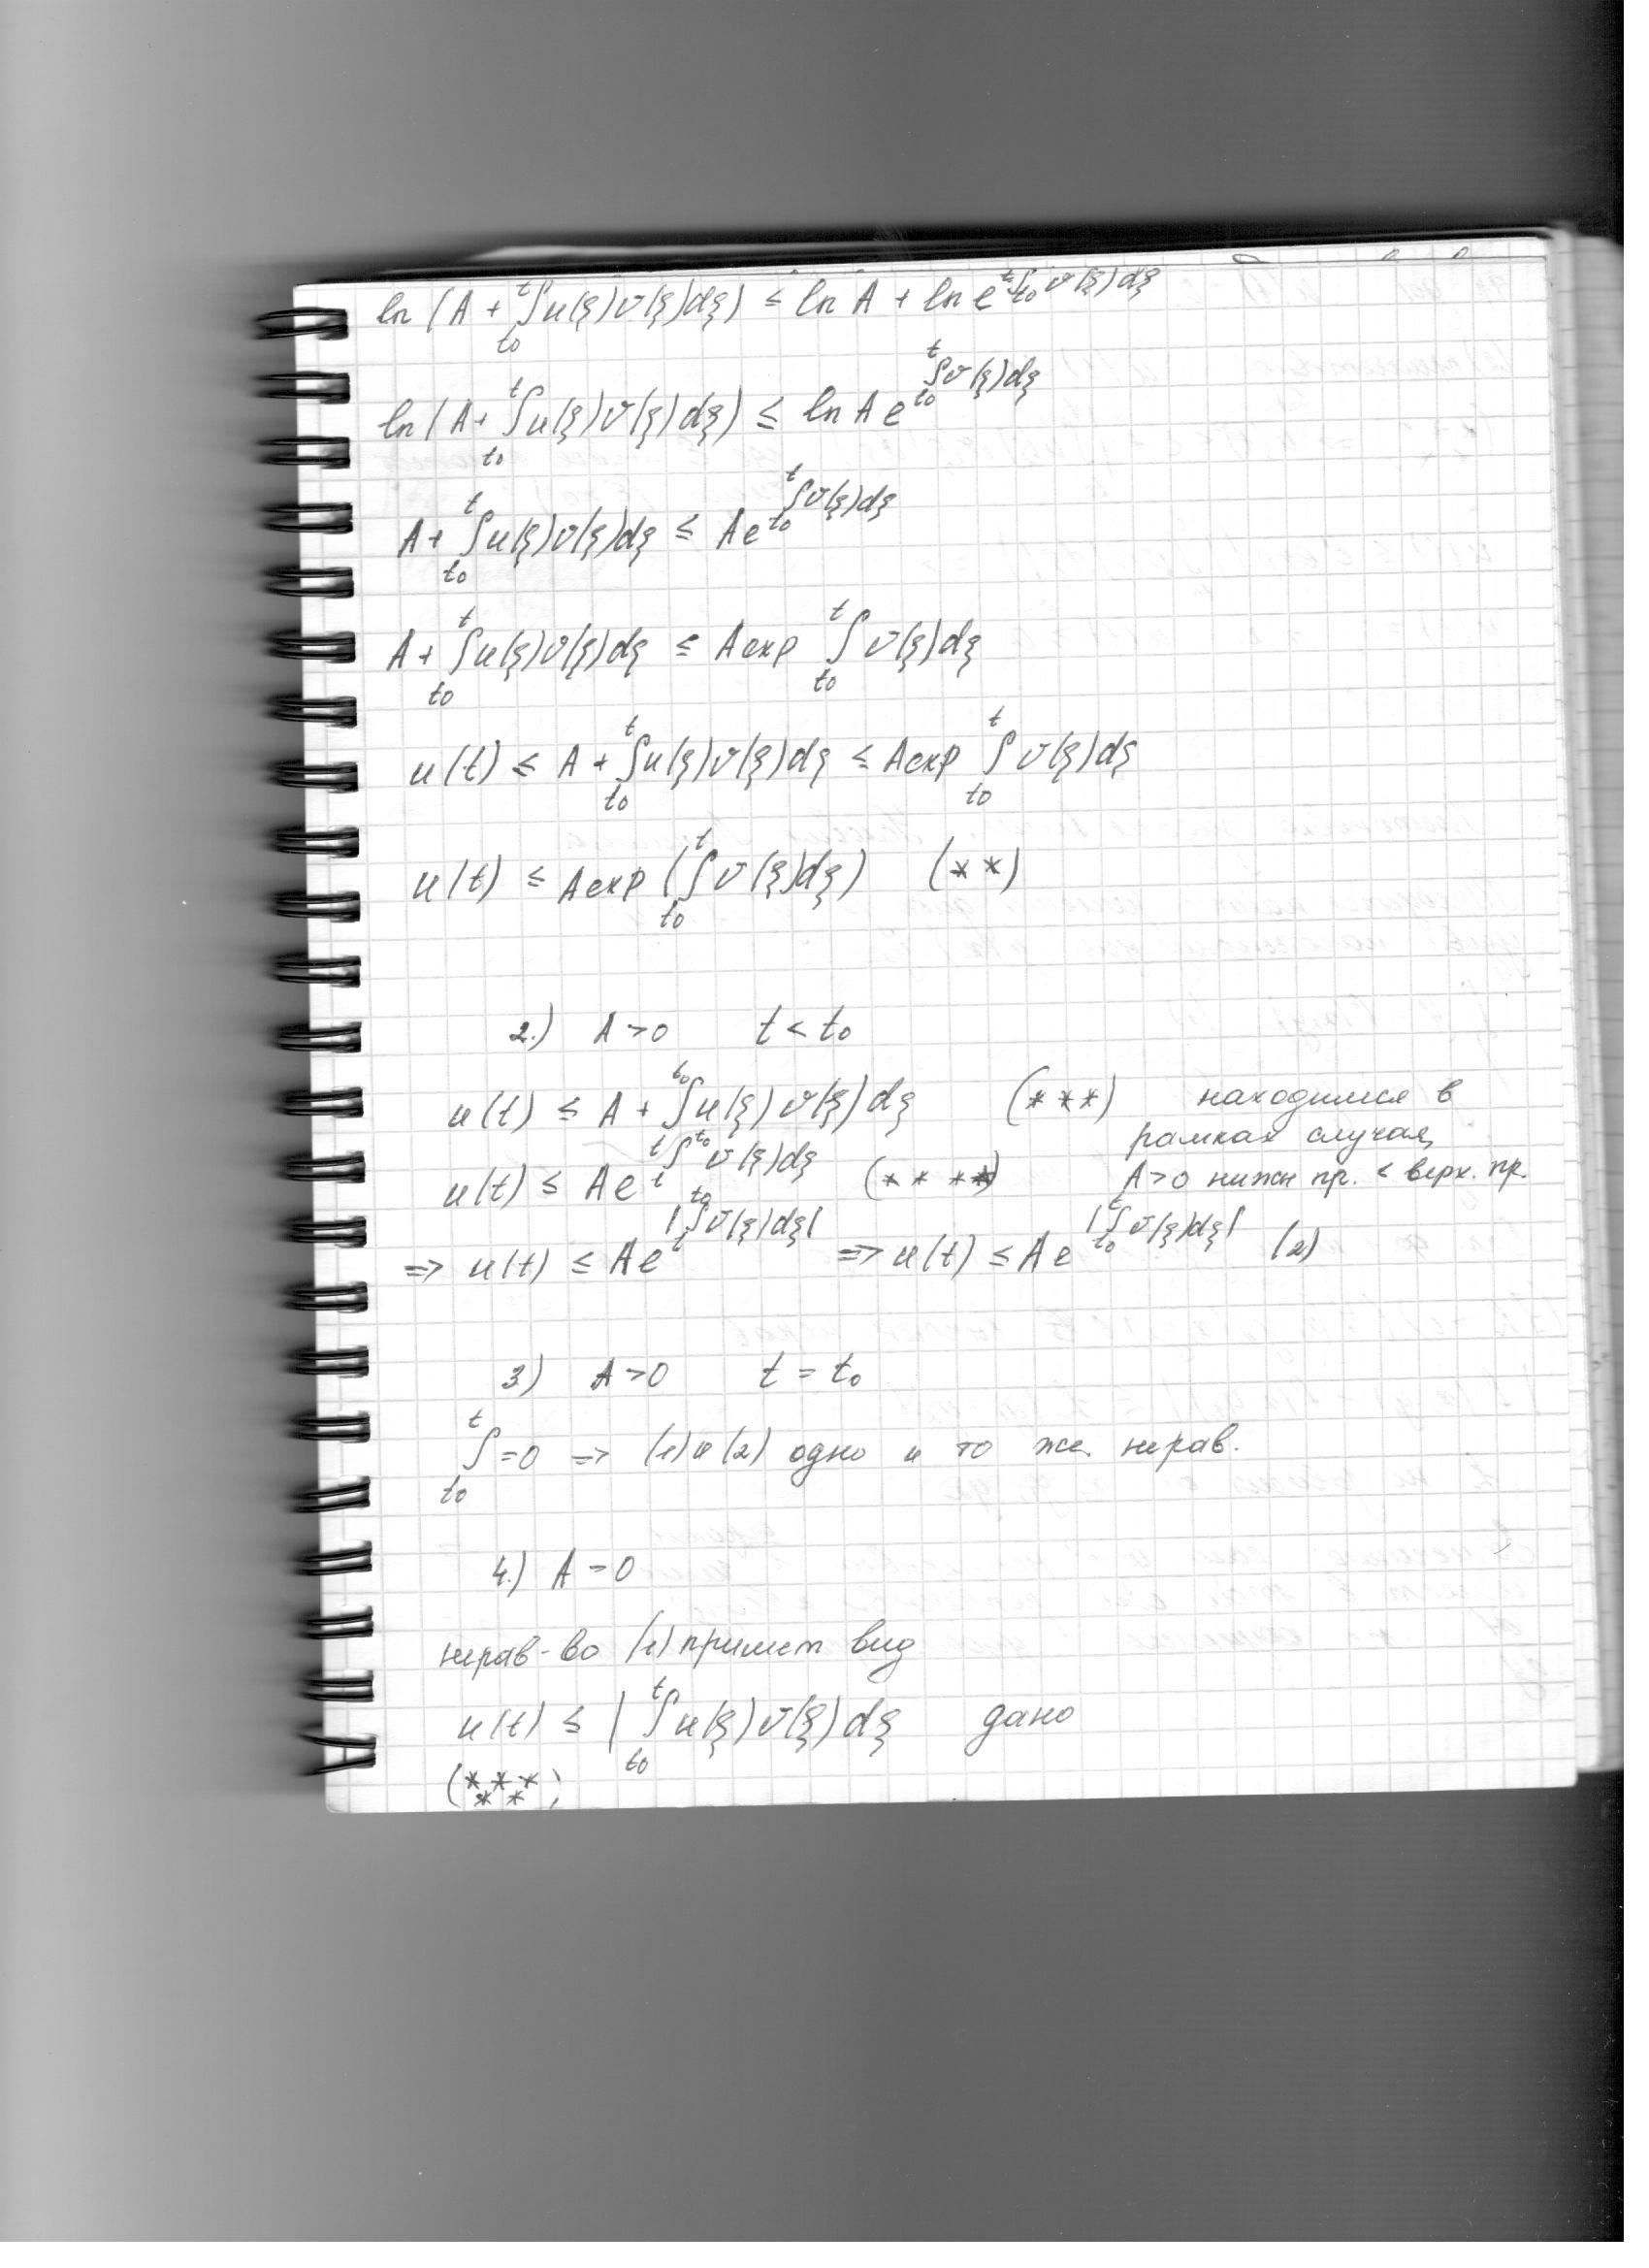 ln (A + ∫_{t₀}^{t} u(ξ)v(ξ)dξ) ≤ ln A + ln e^{∫_{t₀}^{t} v(ξ)dξ}
ln (A + ∫_{t₀}^{t} u(ξ)v(ξ)dξ) ≤ ln A e^{∫_{t₀}^{t} v(ξ)dξ}
A + ∫_{t₀}^{t} u(ξ)v(ξ)dξ ≤ A e^{∫_{t₀}^{t} v(ξ)dξ}
A + ∫_{t₀}^{t} u(ξ)v(ξ)dξ ≤ A exp ∫_{t₀}^{t} v(ξ)dξ
u(t) ≤ A + ∫_{t₀}^{t} u(ξ)v(ξ)dξ ≤ A exp ∫_{t₀}^{t} v(ξ)dξ
u(t) ≤ A exp (∫_{t₀}^{t} v(ξ)dξ) (**)
2.) A > 0 t < t₀
u(t) ≤ A + ∫_{t}^{t₀} u(ξ)v(ξ)dξ (***) находимся в
рамках случая,
u(t) ≤ A e^{∫_{t}^{t₀} v(ξ)dξ} (****) A > 0 нижн пр. < верх. пр.
=> u(t) ≤ A e^{|∫_{t}^{t₀} v(ξ)dξ|} => u(t) ≤ A e^{|∫_{t₀}^{t} v(ξ)dξ|} (2)
3) A > 0 t = t₀
∫_{t₀}^{t} = 0 => (1) и (2) одно и то же нерав.
4.) A = 0
нерав-во (1) примет вид
u(t) ≤ | ∫_{t₀}^{t} u(ξ)v(ξ)dξ дано
(*****)